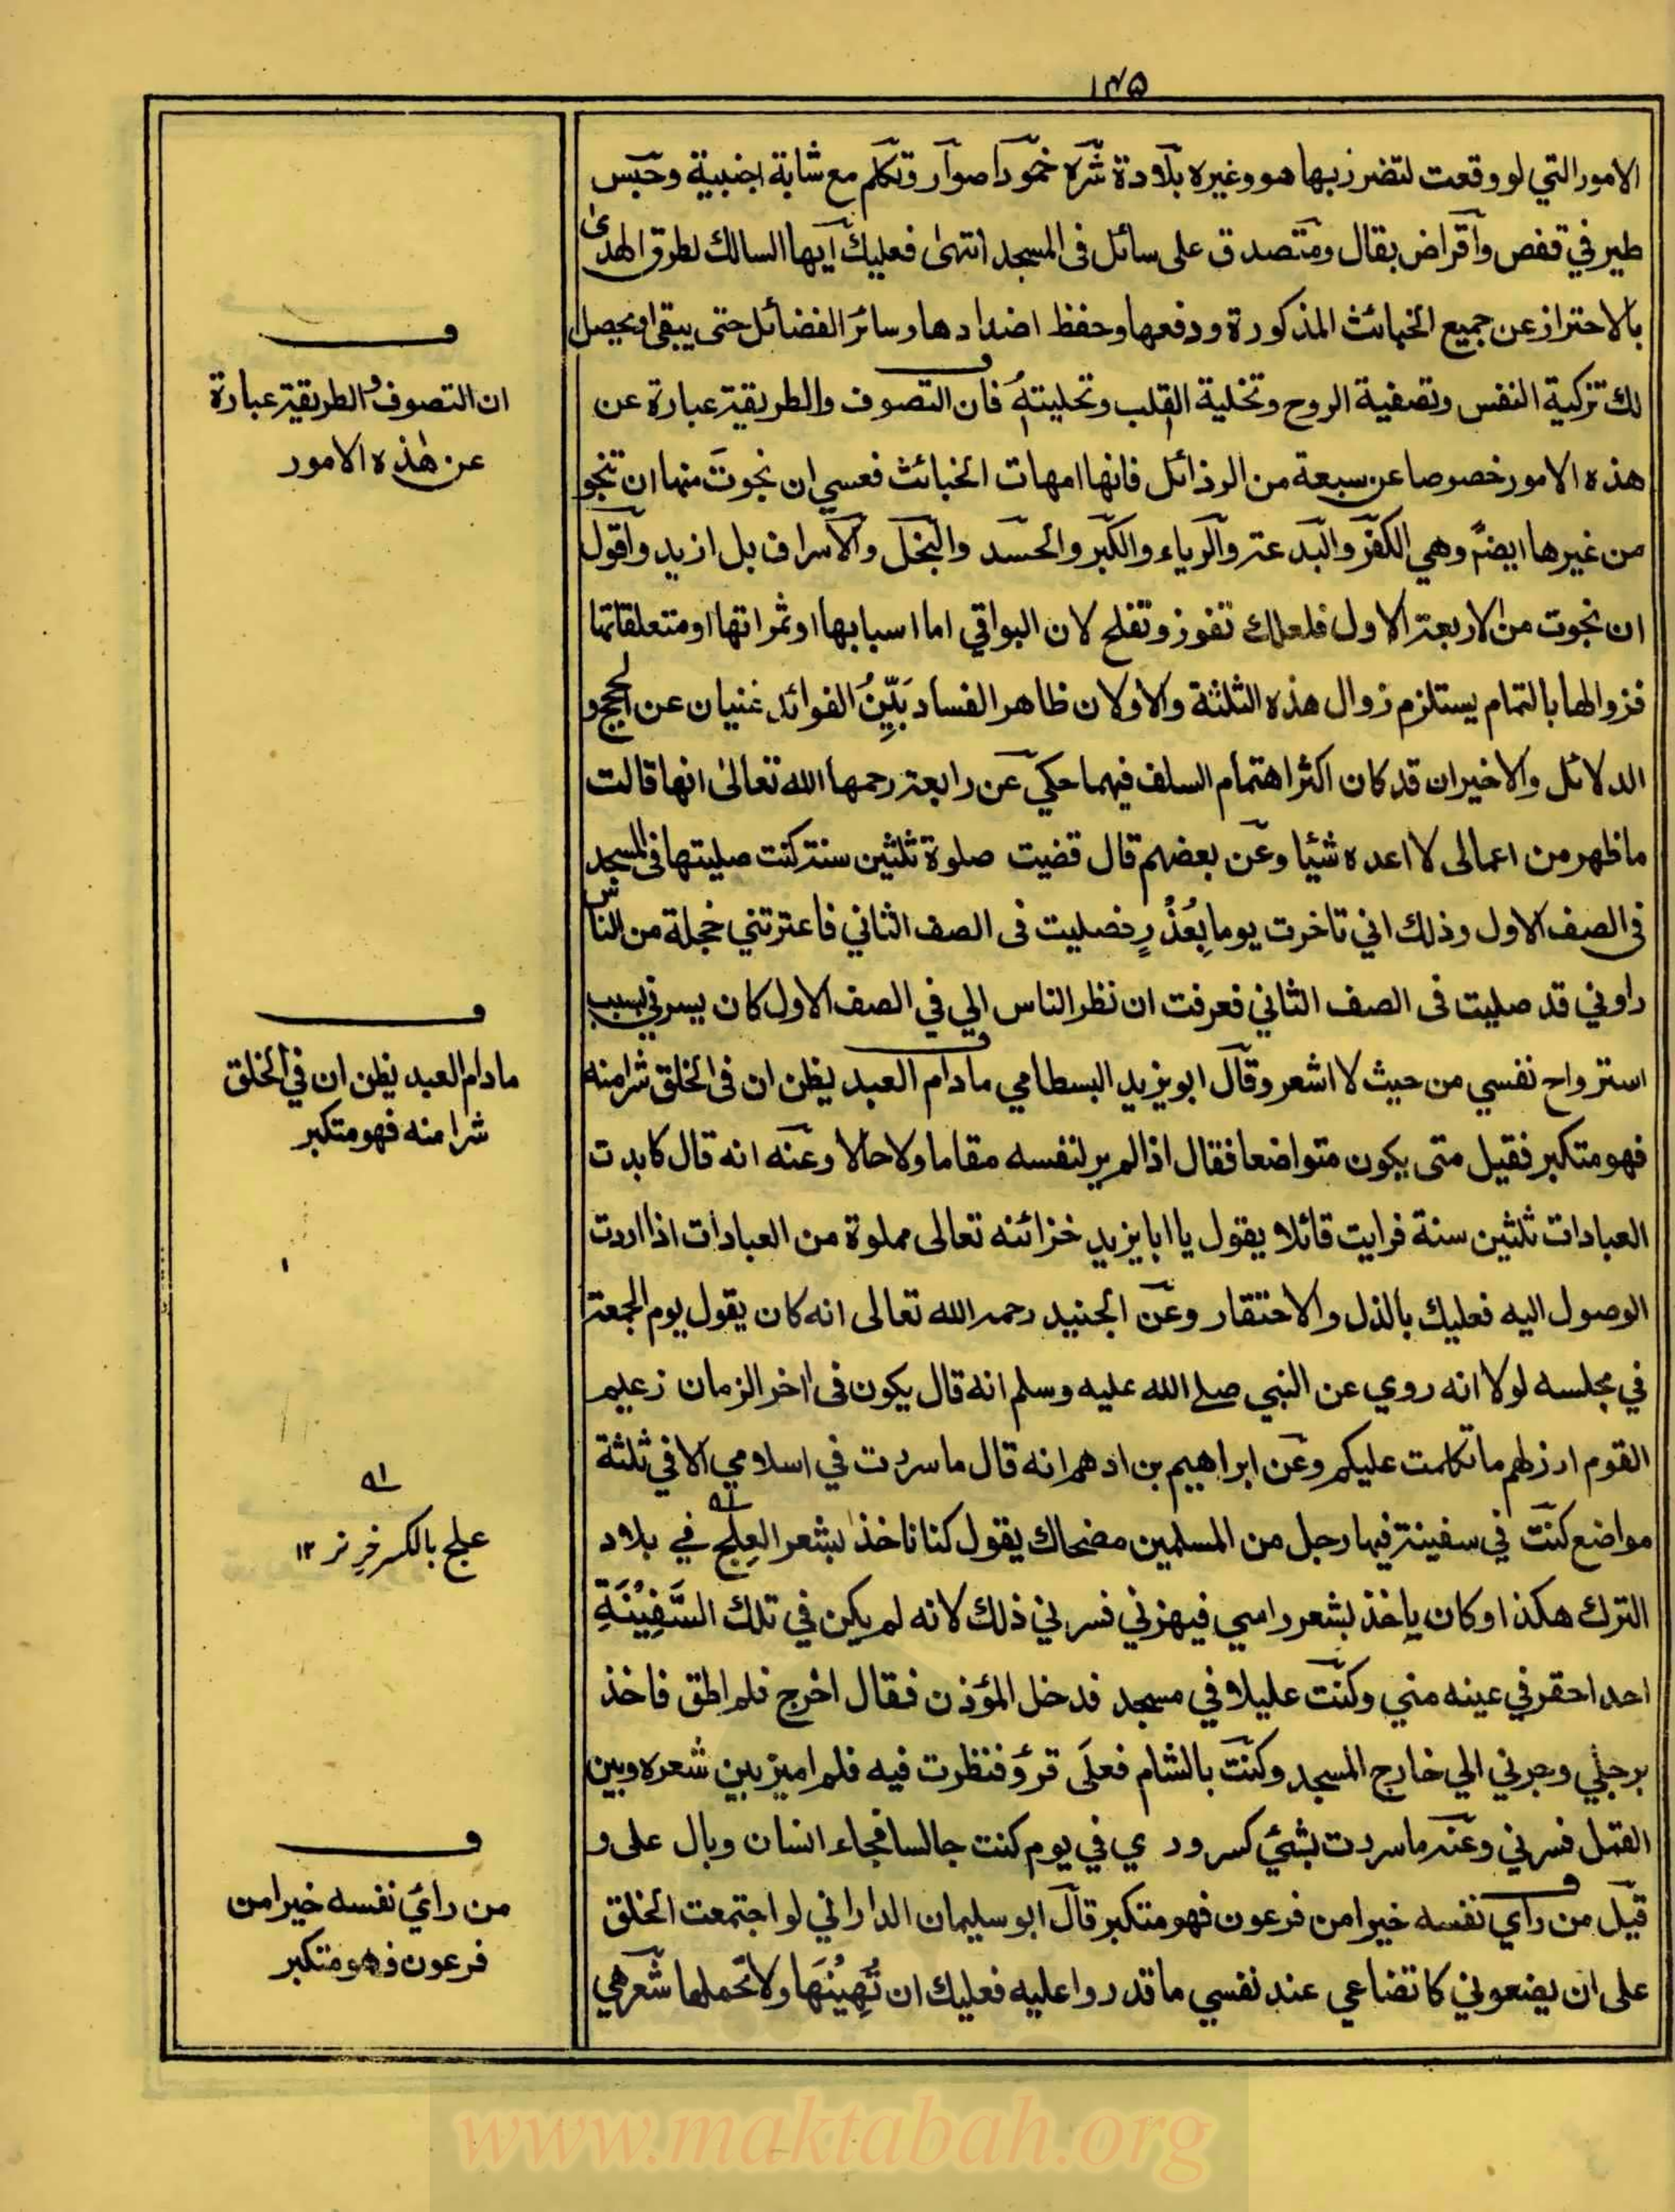 ١٢٥
الامور التي لو وقعت لتضرر بها هو وغيره بلادة شره خمود اصوار وتكلم مع شابة اجنبية وحبس
طير في قفص واقراض بقال ومتصدق على سائل فى المسجد انتهىٰ فعليك ايها السالك لطرق الهدىٰ
بالاحتراز عن جميع الخبائث المذكورة ودفعها وحفظ اضدادها وسائر الفضائل حتى يبقى او يحصل
لك تزكية النفس وتصفية الروح وتخلية القلب وتحليتهُ فان التصوف والطريقة عبارة عن
هذه الامور خصوصا عن سبعة من الرذائل فانها امهات الخبائث فعسي ان نجوتَ منها ان تنجو
من غيرها ايضا وهي الكفر والبدعة والرياء والكبر والحسد والبخل والاسراف بل ازيد واقول
ان نجوت من الاربعة الاول فلعلك تفوز وتفلح لان البواقي اما اسبابها او ثمراتها او متعلقاتها
فزوالها بالتمام يستلزم زوال هذه الثلثة والاولان ظاهر الفساد بَيِّنُ الفوائد غنيان عن الحجج و
الدلائل والاخيران قد كان اكثر اهتمام السلف فيهما حكي عن رابعة رحمها الله تعالىٰ انها قالت
ما ظهر من اعمالى لا اعده شئيا وعن بعضهم قال قضيت صلوة ثلثين سنة كنت صليتها فى المسجد
فى الصف الاول وذلك اني تاخرت يوما بِعُذْرٍ فصليت فى الصف الثاني فاعترتني خجلة من الناس
راوني قد صليت فى الصف الثاني فعرفت ان نظر الناس الي في الصف الاول كان يسرني بسبب
استرواح نفسي من حيث لا اشعر وقال ابو يزيد البسطامي مادام العبد يظن ان فى الخلق شرا منه
فهو متكبر فقيل متى يكون متواضعا فقال اذا لم ير لنفسه مقاما ولا حالا وعنه انه قال كابدت
العبادات ثلثين سنة فرايت قائلا يقول يا ابا يزيد خزائنه تعالى مملوة من العبادات اذا اردت
الوصول اليه فعليك بالذل والاحتقار وعن الجنيد رحمه الله تعالى انه كان يقول يوم الجمعة
في مجلسه لولا انه روي عن النبي صلے الله عليه وسلم انه قال يكون فى اخر الزمان زعيم
القوم ارذلهم ما تكلمت عليكم وعن ابراهيم بن ادهم انه قال ما سررت في اسلامي الا في ثلثة
مواضع كنت في سفينة فيها رجل من المسلمين مضحاك يقول كنا ناخذ بشعر العِلْج في بلاد
الترك هكذا وكان ياخذ بشعر راسي فيهزني فسرني ذلك لانه لم يكن في تلك السَّفِيْنَةِ
احد احقر في عينه مني وكنت عليلا في مسجد فدخل المؤذن فقال اخرج فلم اطق فاخذ
برجلي وجرني الي خارج المسجد وكنت بالشام فعلى قرؤ فنظرت فيه فلم اميز بين شعره وبين
القمل فسرني وعنه ما سررت بشئي كسروري في يوم كنت جالسا فجاء انسان وبال على و
قيل من راي نفسه خيرا من فرعون فهو متكبر قال ابو سليمان الداراني لو اجتمعت الخلق
على ان يضعوني كاتضاعي عند نفسي ما قدروا عليه فعليك ان تُهِيْنَها ولا تحملها شعر هي
ف
ان التصوف والطريقة عبارة
عن هٰذه الامور
ف
مادام العبد يظن ان في الخلق
شرا منه فهو متكبر
علج بالكسر خرِ نر ١٢
ف
من رائ نفسه خيرا من
فرعون فهو متكبر
www.maktabah.org